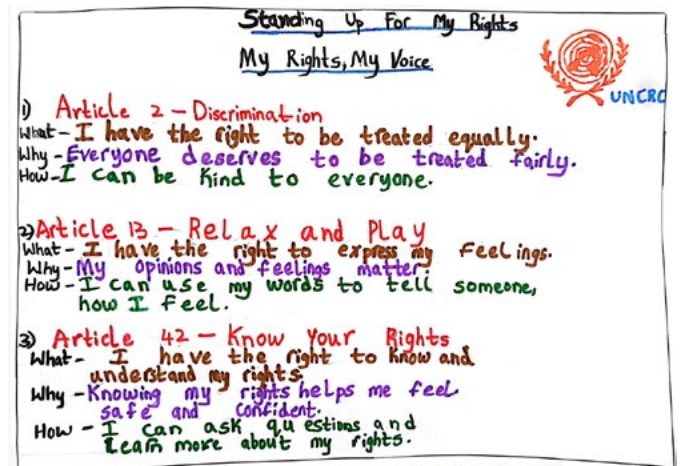 Standing Up For My Rights
My Rights, My Voice
UNCRC
1) Article 2 – Discrimination
What – I have the right to be treated equally.
Why – Everyone deserves to be treated fairly.
How – I can be kind to everyone.
2) Article 13 – Relax and Play
What – I have the right to express my feelings.
Why – My opinions and feelings matter.
How – I can use my words to tell someone,
how I feel.
3) Article 42 – Know Your Rights
What – I have the right to know and
understand my rights.
Why – Knowing my rights helps me feel
safe and confident.
How – I can ask questions and
learn more about my rights.